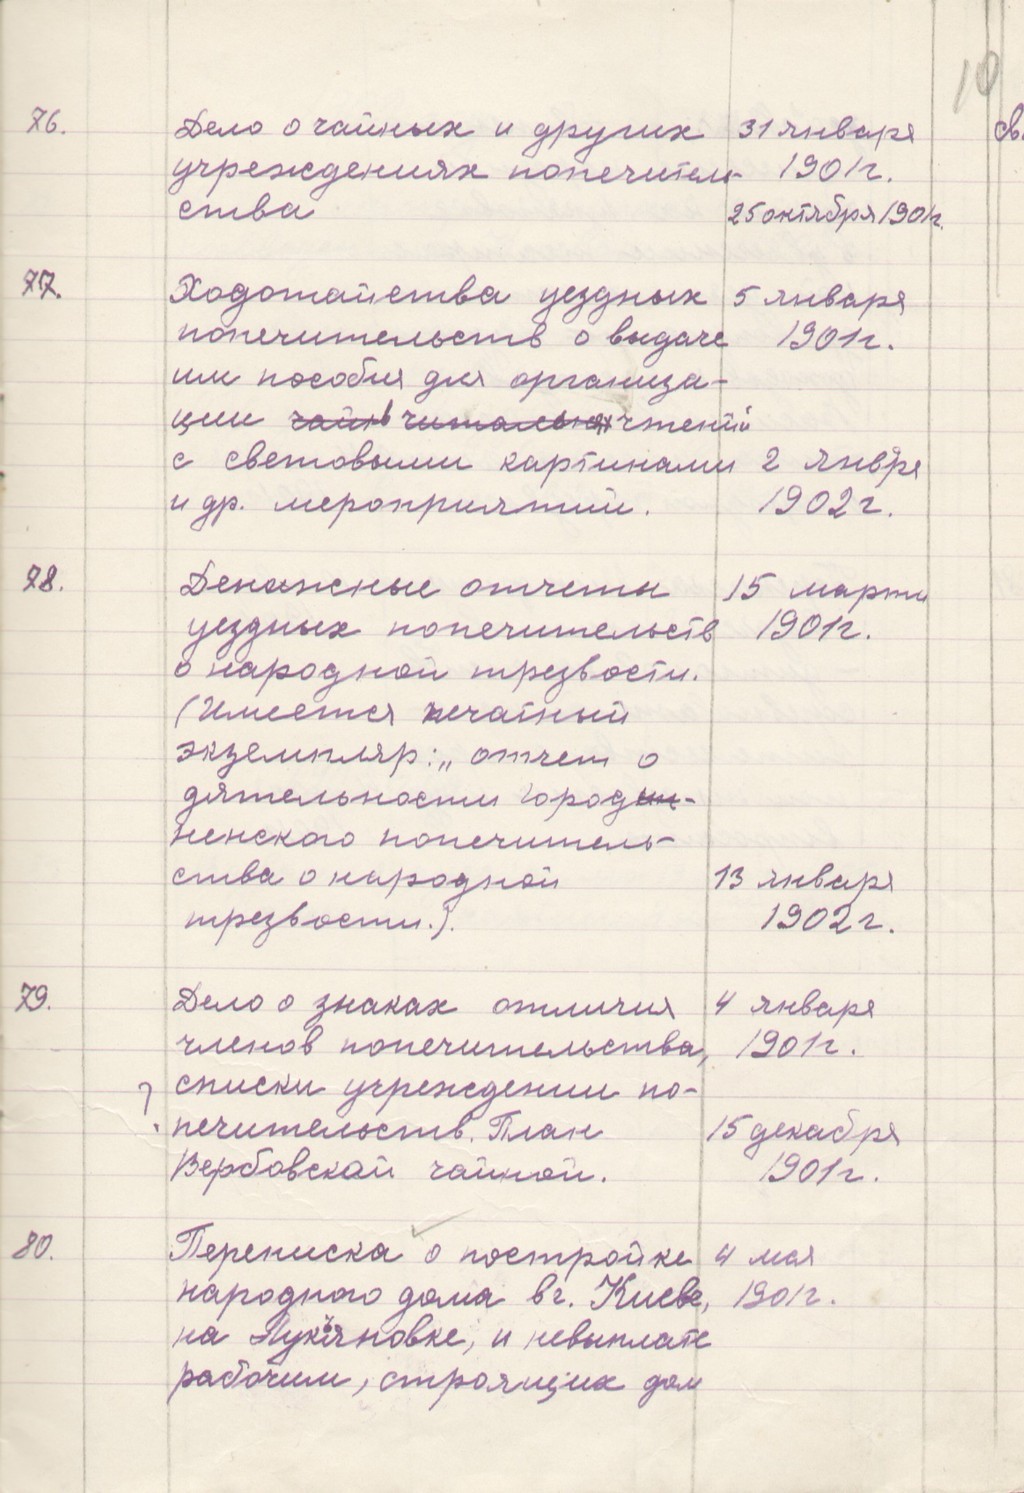 10
76. Дело о чайных и других 31 января св.
учреждениях попечитель- 1901г.
ства 25 октября 1901г.
77. Ходотайства уездных 5 января
попечительств о выдаче 1901г.
им пособия для организа-
ции чтений
с световыми картинами 2 января
и др. мероприятий. 1902г.
78. Денежные отчеты 15 марта
уездных попечительств 1901г.
о народной трезвости.
(Имеется печатный
экземпляр: „ отчет о
деятельности Город-
ненского попечитель-
ства о народной 13 января
трезвости.). 1902г.
79. Дело о знаках отличия 4 января
членов попечительства, 1901г.
списки учреждении по-
? печительств. План 15 декабря
Вербовской чайной. 1901г.
80. Переписка о постройке 4 мая
народного дома в г. Киеве, 1901г.
на Лукьяновке, и невыплате
рабочим, строящих дом